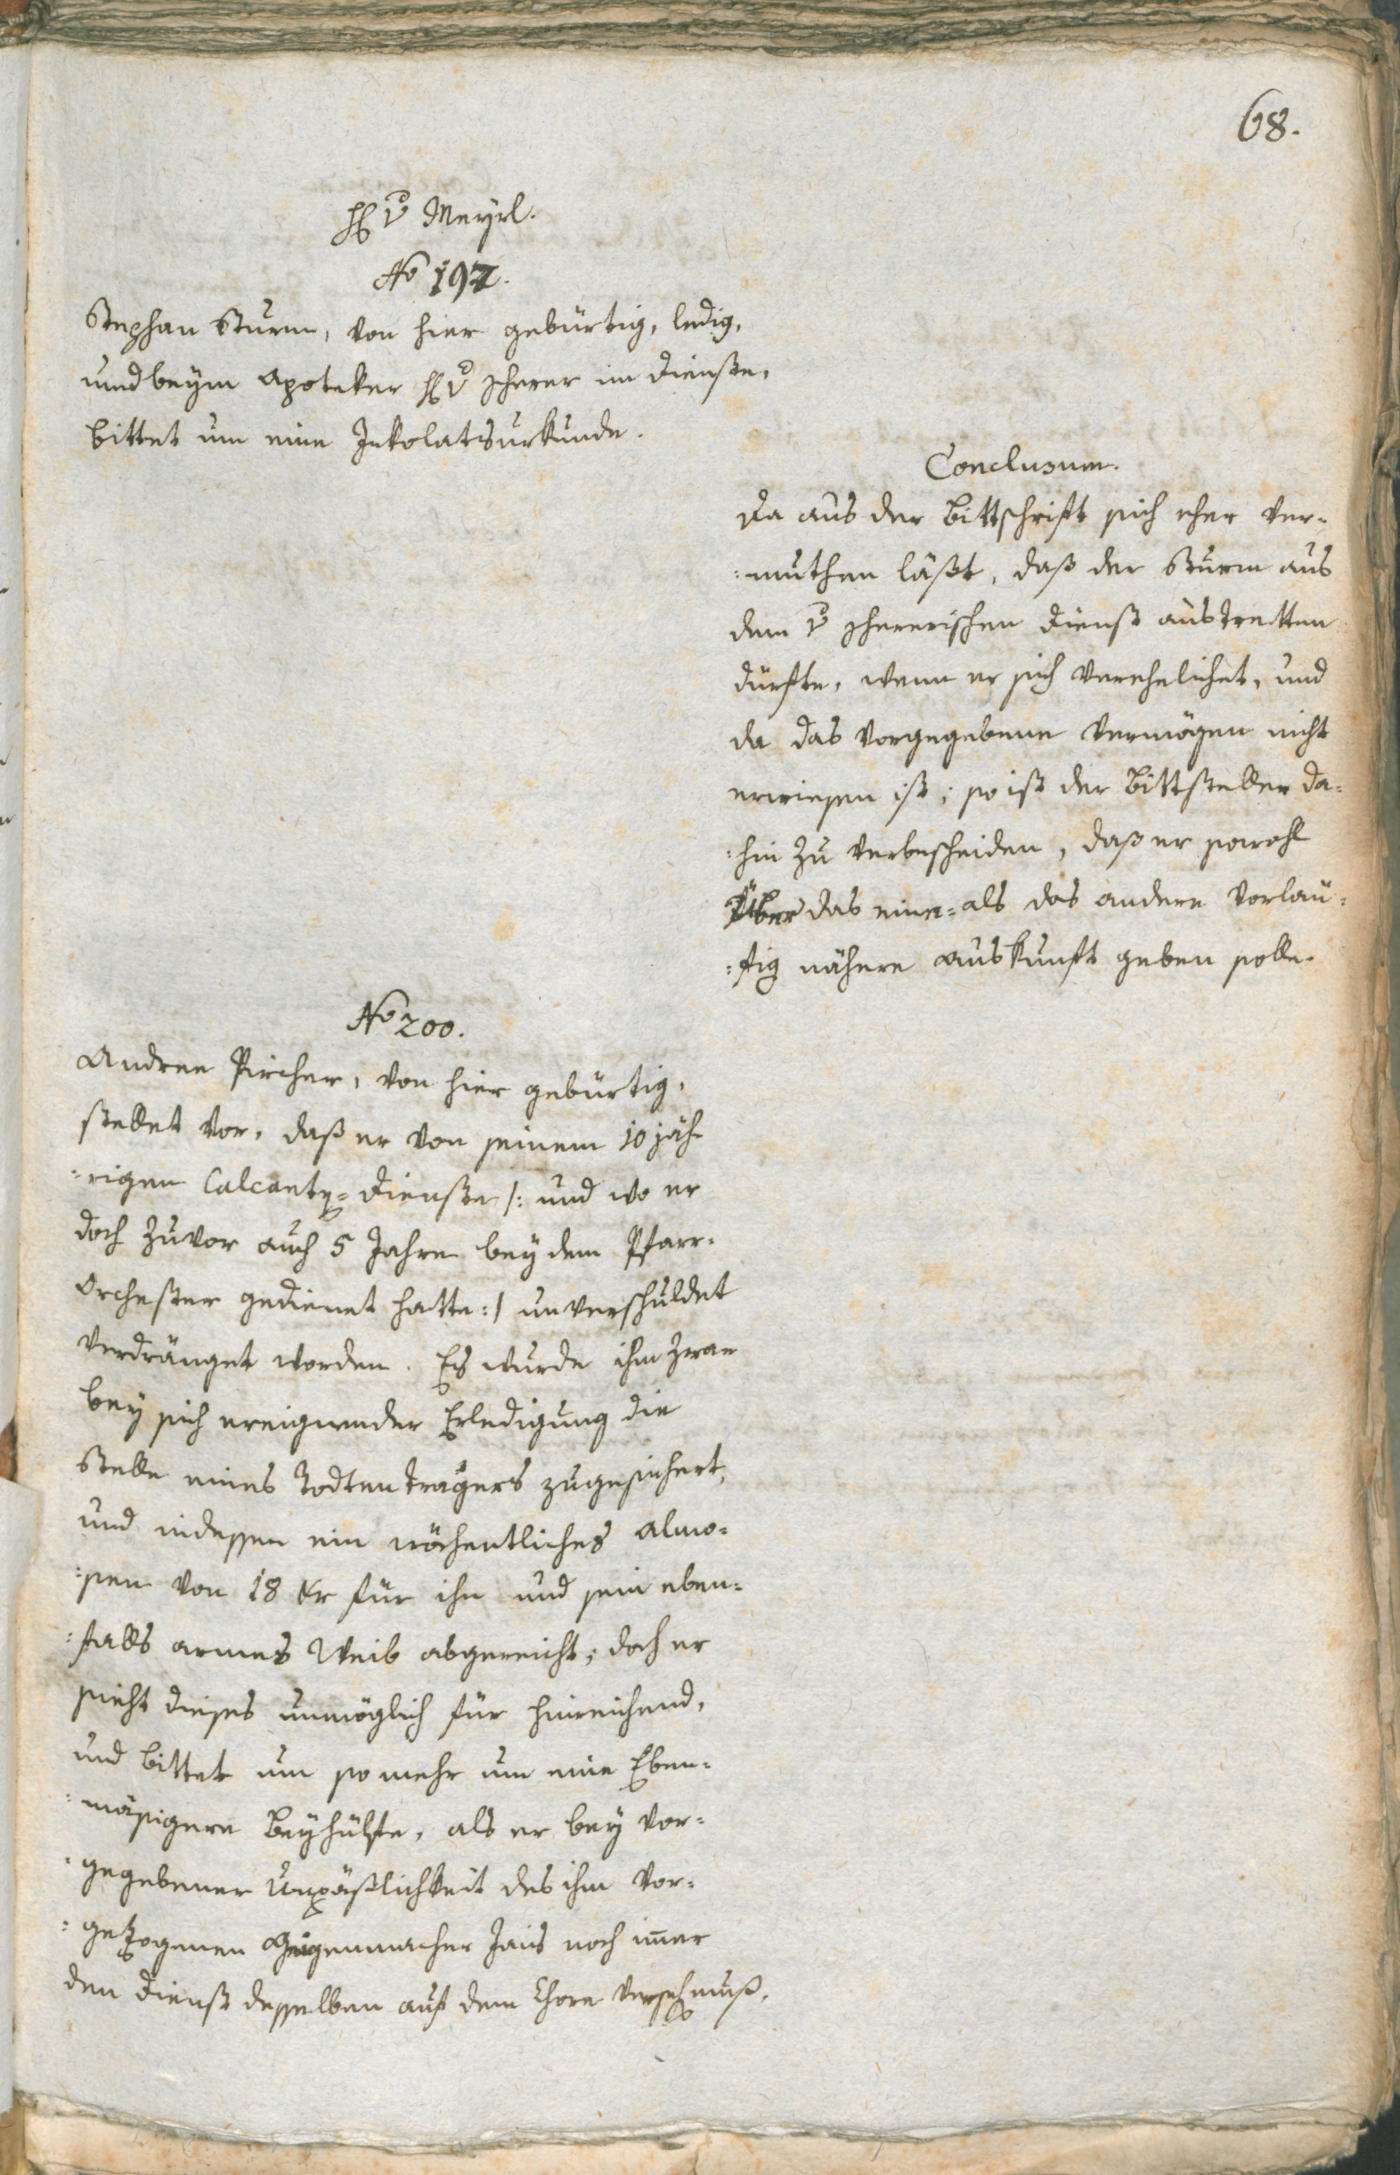 68.
H v Meyrl.
No 197.
Stephan Sturm, von hier gebürtig, ledig,
und beym Apoteker H v Scherer im Dienste,
bittet um eine Inkolatsurkunde.
Conclusum.
Da aus der Bittschrift sich eher ver-
:muthen läßt, daß der Sturm aus
dem v Schererischen Dienst austretten
dürfte, wenn er sich verehelichet, und
da das vorgegebene Vermögen nicht
erwiesen ist; so ist der Bittsteller da:
:hin zu verbescheiden, daß er sowohl
Über das eine= als das andere vorläu:
:fig nähere Auskunft geben solle.
No 200.
Andree Pircher, von hier gebürtig,
stellet vor, daß er von seinem 10 jäh-
:rigen Calcantz=Dienste /: und wo er
doch zuvor auch 5 Jahre bey dem Pfarr-
Orchester gedienet hatte :/ unverschuldet
verdränget worden. Es wurde ihm zwar
bey sich ereigender Erledigung die
Stelle eines Todtenträgers zugesichert,
und indessen ein wöchentliches Almo=
:sen von 18 Kr für ihn und sein eben=
:falls armes Weib abgereicht; doch er
sieht dieses unmöglich für hinreichend,
und bittet um so mehr um eine Eben=
:mäsigere Beyhülfe, als er bey vor=
:gegebener Unpäßlichkeit des ihm vor=
:gezogenen Geigenmacher Jais noch immer
den Dienst desselben auf dem Chore versehen muß.